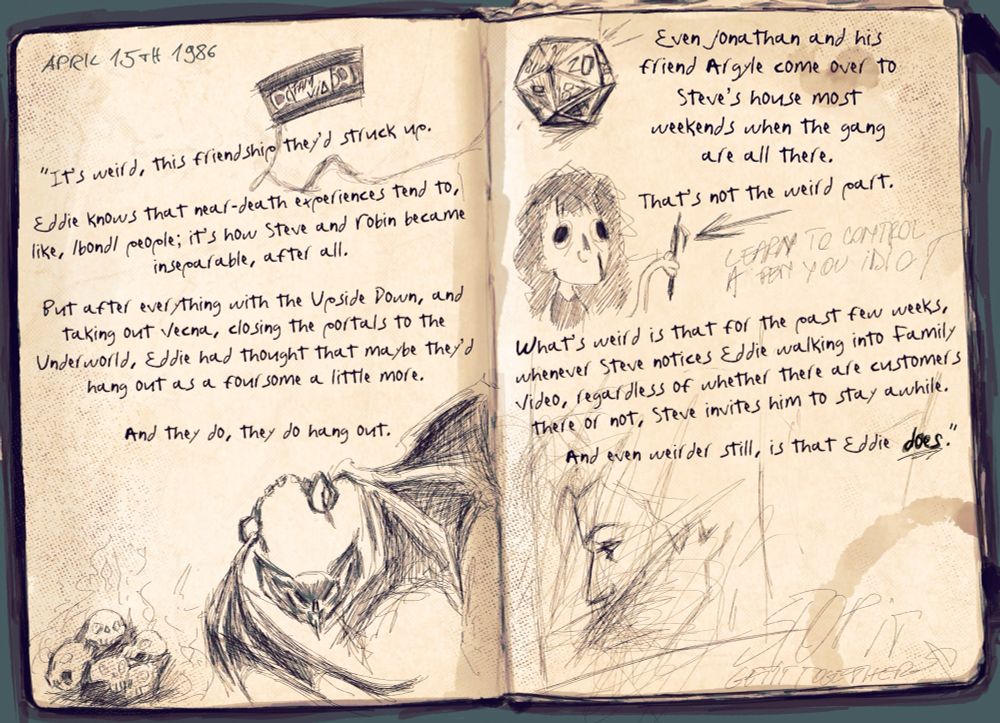 APRIL 15TH 1986
"It's weird, this friendship they'd struck up.
Eddie knows that near-death experiences tend to,
like, /bond/ people; it's how Steve and Robin became
inseparable, after all.
But after everything with the Upside Down, and
taking out Vecna, closing the portals to the
Underworld, Eddie had thought that maybe they'd
hang out as a foursome a little more.
And they do, they do hang out.
20
Even Jonathan and his
friend Argyle come over to
Steve's house most
weekends when the gang
are all there.
That's not the weird part.
LEARN TO CONTROL
A PEN YOU IDIOT
What's weird is that for the past few weeks,
whenever Steve notices Eddie walking into Family
Video, regardless of whether there are customers
there or not, Steve invites him to stay awhile.
And even weirder still, is that Eddie does."
STOP IT
GET IT TOGETHER